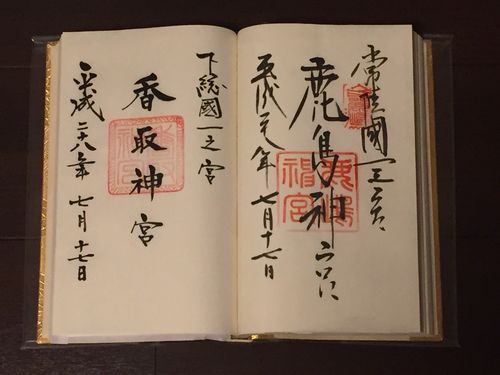 常陸國一之宮
鹿島神宮
鹿島神宮
七月十七日
下総國一之宮
香取神宮
平成二十八年 七月十七日